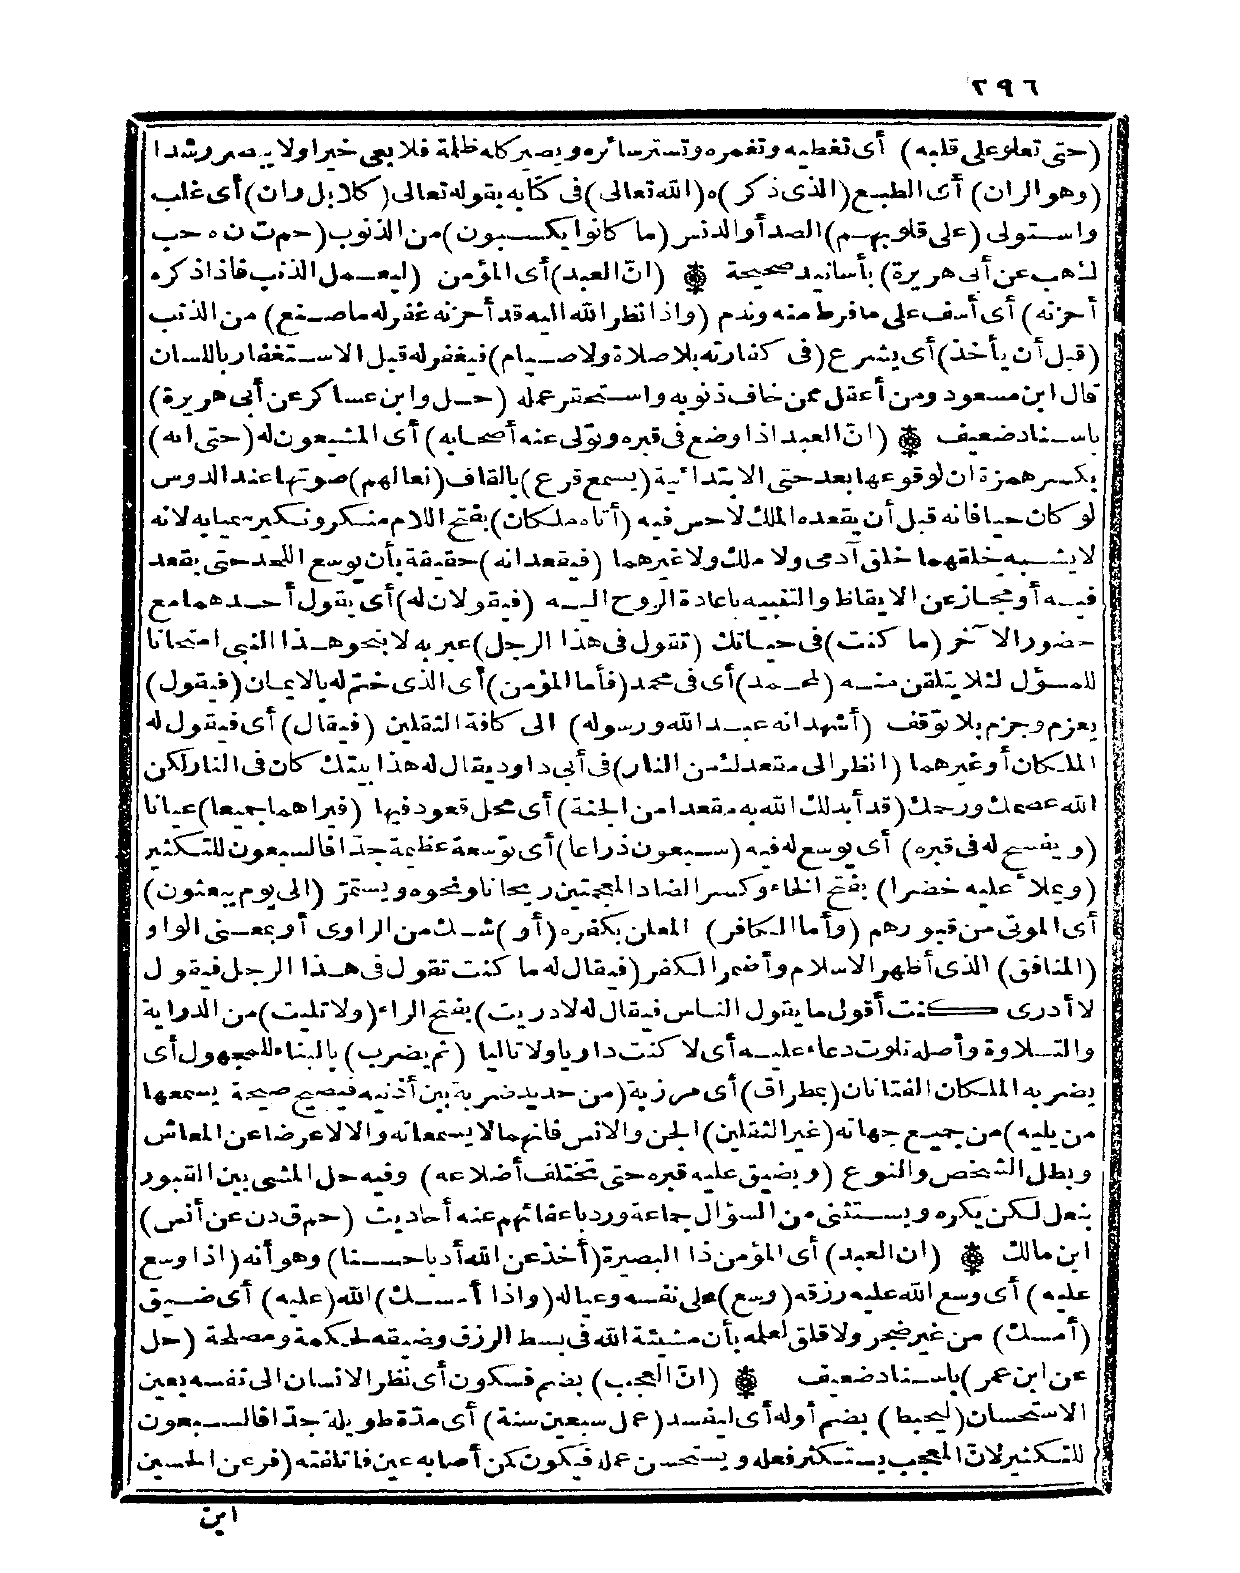 ٢٩٦
(حتى تعلو على قلبه) أى تغطيه وتغمره وتستر سائره ويصير كله ظلمة فلا يعى خيرا ولا يبصر رشدا
(وهو الران) أى الطبع (الذى ذكر)ه (الله تعالى) فى كتابه بقوله تعالى (كلا بل ران) أى غلب
واستولى (على قلوبهم) الصدأ والدنس (ما كانوا يكسبون) من الذنوب (حم ت ن ه حب
ك هب عن أبى هريرة) بأسانيد صحيحة ۞ (ان العبد) أى المؤمن (ليعمل الذنب فاذا ذكره
أحزنه) أى أسف على ما فرط منه وندم (واذا نظر الله اليه قد أحزنه غفر له ما صنع) من الذنب
(قبل أن يأخذ) أى يشرع (فى كفارته بلا صلاة ولا صيام) فيغفر له قبل الاستغفار باللسان
قال ابن مسعود ومن أعقل ممن خاف ذنوبه واستحقر عمله (حل وابن عساكر عن أبى هريرة)
باسناد ضعيف ۞ (ان العبد اذا وضع فى قبره وتولى عنه أصحابه) أى المشيعون له (حتى انه)
بكسر همزة ان لوقوعها بعد حتى الابتدائية (يسمع قرع) بالقاف (نعالهم) صوتها عند الدوس
لو كان حيا فانه قبل أن يقعده الملك لاحس فيه (أتاه ملكان) بفتح اللام منكر ونكير سميا به لانه
لا يشبه خلقهما خلق آدمى ولا ملك ولا غيرهما (فيقعدانه) حقيقة بأن يوسع اللحد حتى يقعد
فيه أو مجاز عن الايقاظ والتنبيه باعادة الروح اليه (فيقولان له) أى يقول أحدهما مع
حضور الآخر (ما كنت) فى حياتك (تقول فى هذا الرجل) عبر به لا بنحو هذا النبى امتحانا
للمسؤل لئلا يتلقن منه (لمحمد) أى فى محمد (فأما المؤمن) أى الذى ختم له بالايمان (فيقول)
بعزم وجزم بلا توقف (أشهد انه عبد الله ورسوله) الى كافة الثقلين (فيقال) أى فيقول له
الملكان أو غيرهما (انظر الى مقعدك من النار) فى أبى داود يقال له هذا بيتك كان فى النار لكن
الله عصمك ورحمك (قد أبدلك الله به مقعدا من الجنة) أى محل قعود فيها (فيراهما جميعا) عيانا
(ويفسح له فى قبره) أى يوسع له فيه (سبعون ذراعا) أى توسعة عظيمة جدا فالسبعون للتكثير
(ويملا عليه خضرا) بفتح الخاء وكسر الضاد المعجمتين ريحانا ونحوه ويستمر (الى يوم يبعثون)
أى الموتى من قبورهم (وأما الكافر) المعلن بكفره (أو) شك من الراوى أو بمعنى الواو
(المنافق) الذى أظهر الاسلام وأضمر الكفر (فيقال له ما كنت تقول فى هذا الرجل فيقول
لا أدرى كنت أقول ما يقول الناس فيقال له لا دريت) بفتح الراء (ولا تليت) من الدراية
والتلاوة وأصله تلوت دعاء عليه أى لا كنت داريا ولا تاليا (ثم يضرب) بالبناء للمجهول أى
يضربه الملكان الفتانان (بمطراق) أى مرزبة (من حديد ضربة بين أذنيه فيصيح صيحة يسمعها
من يليه) من جميع جهاته (غير الثقلين) الجن والانس فانهما لا يسمعانه والا لاعرضا عن المعاش
وبطل الشخص والنوع (ويضيق عليه قبره حتى تختلف أضلاعه) وفيه حل المشى بين القبور
بنعل لكن يكره ويستثنى من السؤال جماعة ورد باعفائهم عنه أحاديث (حم ق د ن عن أنس)
ابن مالك ۞ (ان العبد) أى المؤمن ذا البصيرة (أخذ عن الله أدبا حسنا) وهو أنه (اذا وسع
عليه) أى وسع الله عليه رزقه (وسع) على نفسه وعياله (واذا أمسك) الله (عليه) أى ضيق
(أمسك) من غير ضجر ولا قلق لعلمه بأن مشيئة الله فى بسط الرزق وضيقه لحكمة ومصلحة (حل
عن ابن عمر) باسناد ضعيف ۞ (ان العجب) بضم فسكون أى نظر الانسان الى نفسه بعين
الاستحسان (ليحبط) بضم أوله أى ليفسد (عمل سبعين سنة) أى مدة طويلة جدا فالسبعون
للتكثير لان المعجب يستكثر فعله ويستحسن عمله فيكون كمن أصابه عين فاتلفته (فر عن الحسين
ابن